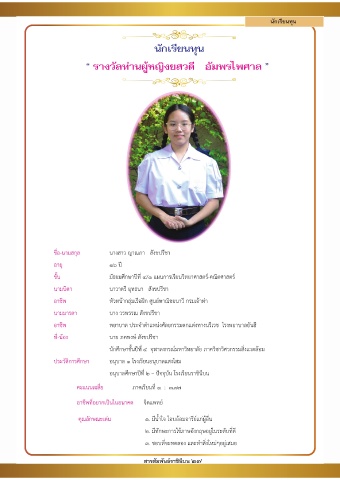 นักเรียนทุน
นักเรียนทุน
“ รางวัลท่านผู้หญิงยสวดี อัมพรไพศาล ”
ชื่อ-นามสกุล นางสาว ญาณภา สัจจปรีชา
อายุ ๑๖ ปี
ชั้น มัธยมศึกษาปีที่ ๔/๑ แผนการเรียนวิทยาศาสตร์-คณิตศาสตร์
นามบิดา นาวาตรี สัจจปรีชา
อาชีพ
นามมารดา นาง วรพรรณ สัจจปรีชา
อาชีพ พยาบาล
พี่-น้อง นาย ภคพงษ์ สัจจปรีชา
นักศึกษาชั้นปีที่ ๔ จุฬาลงกรณ์มหาวิทยาลัย ภาควิชาวิศวกรรมสิ่งแวดล้อม
ประวัติการศึกษา อนุบาล ๑ โรงเรียนอนุบาลแสงโสม
อนุบาลศึกษาปีที่ ๒ – ปัจจุบัน โรงเรียนราชินีบน
คะแนนเฉลี่ย ภาคเรียนที่ ๑ :
อาชีพที่อยากเป็นในอนาคต จิตแพทย์
คุณลักษณะเด่น ๑. มีน้ำใจ โอบอ้อมอารีย์แก่ผู้อื่น
๒. มีทักษะการใช้ภาษาอังกฤษอยู่ในระดับที่ดี
๓. ชอบที่จะทดลอง และทำสิ่งใหม่ๆอยู่เสมอ
สารสัมพันธ์ราชินีบน ๒๓๙